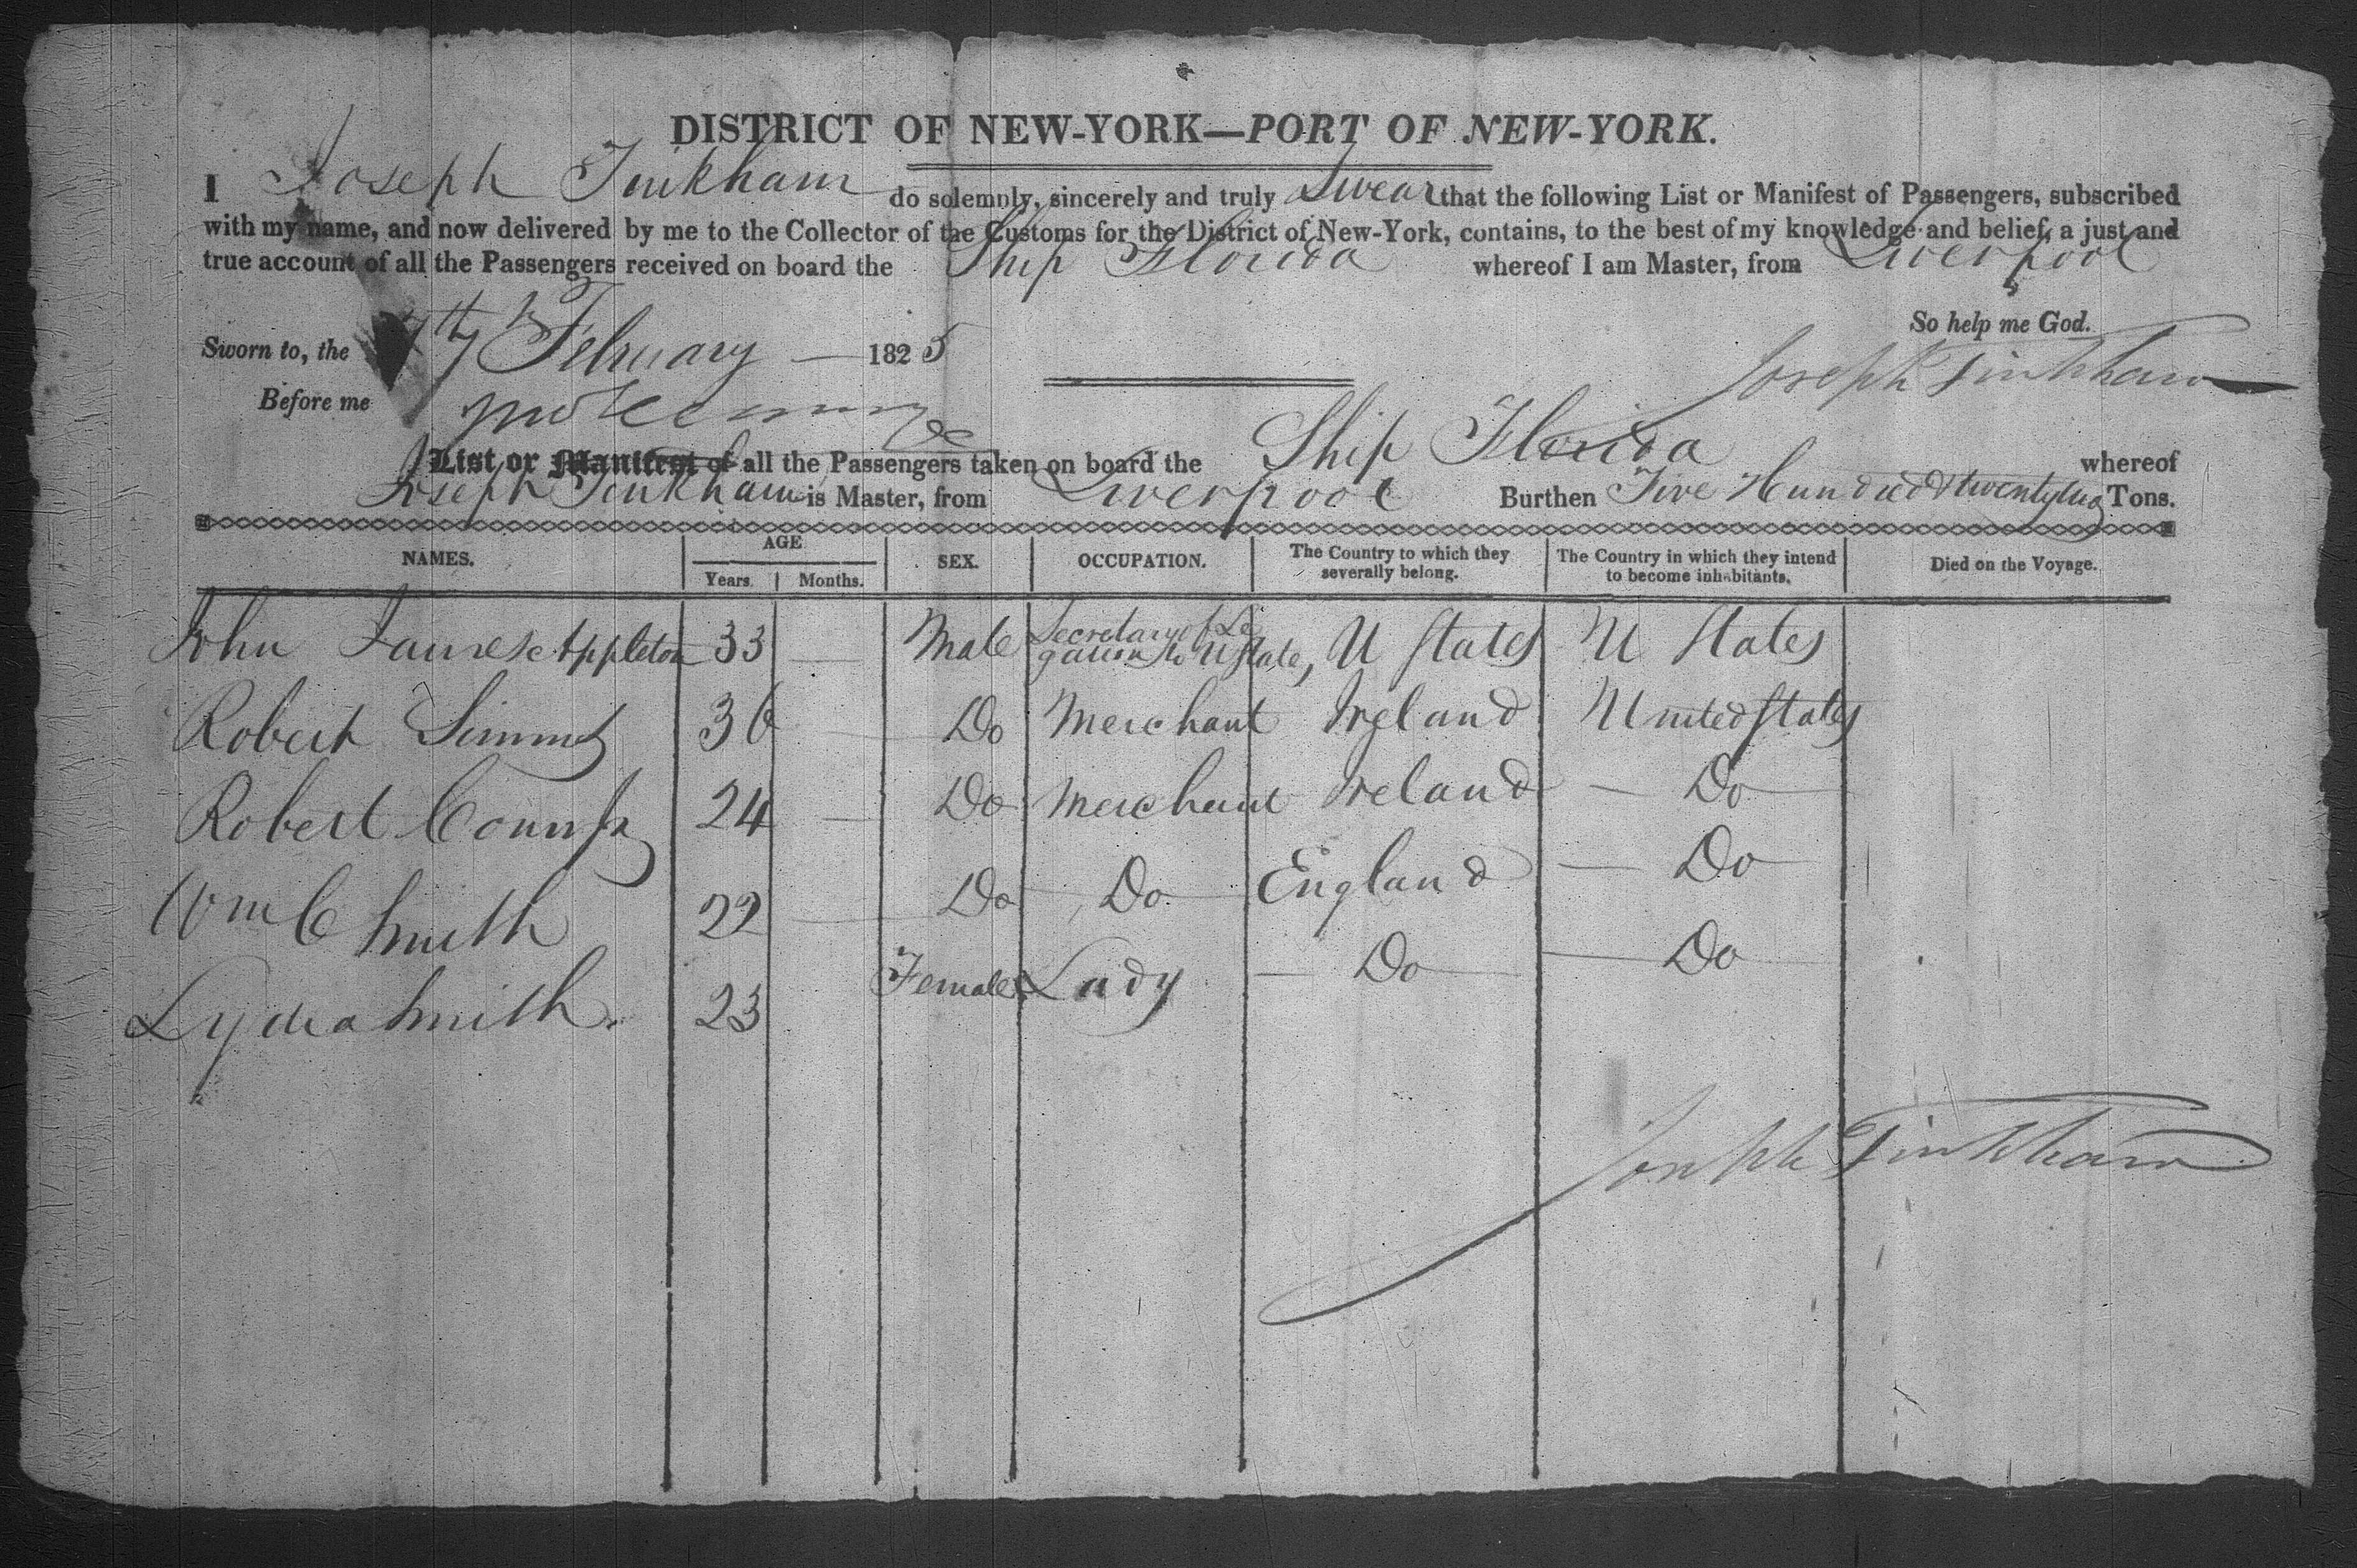 DISTRICT OF NEW-YORK—PORT OF NEW-YORK.
I Joseph Tinkham do solemnly, sincerely and truly Swear that the following List or Manifest of Passengers, subscribed
with my name, and now delivered by me to the Collector of the Customs for the District of New-York, contains, to the best of my knowledge and belief, a just and
true account of all the Passengers received on board the Ship Florida whereof I am Master, from Liverpool
So help me God.
Sworn to, the 7th February 1825
Joseph Tinkham
Before me
List or Manifest of all the Passengers taken on board the Ship Florida whereof
Joseph Tinkham is Master, from Liverpool Burthen Five Hundred & twenty two Tons.
NAMES. AGE Years. Months. SEX. OCCUPATION. The Country to which they severally belong. The Country in which they intend to become inhabitants. Died on the Voyage.
John James Appleton 33 Male Secretary of Legation to U State, U States U States
Robert Simms 36 Do Merchant Ireland United States
Robert 24 Do Merchant Ireland Do
Wm C Smith 22 Do Do England Do
Lydia Smith. 23 Female Lady Do Do
Joseph Tinkham